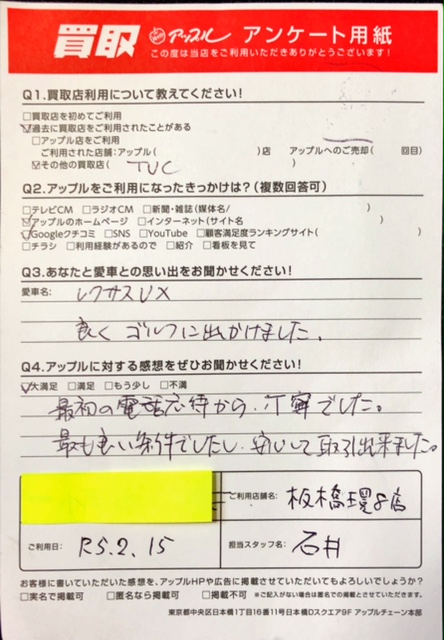 買取 アップル アンケート用紙
この度は当店をご利用いただきありがとうございます！
Q1.買取店利用について教えてください！
□買取店を初めてご利用
☑過去に買取店をご利用されたことがある
□アップル店をご利用
ご利用された店舗：アップル（ ）店 アップルへのご売却（ 回目）
☑その他の買取店（ TUC ）
Q2.アップルをご利用になったきっかけは？（複数回答可）
□テレビCM □ラジオCM □新聞・雑誌（媒体名/ ）
☑アップルのホームページ □インターネット（サイト名 ）
☑Googleクチコミ □SNS □YouTube □顧客満足度ランキングサイト（ ）
□チラシ □利用経験があるので □紹介 □看板を見て
Q3.あなたと愛車との思い出をお聞かせください！
愛車名： レクサスUX
良く ゴルフに出かけました。
Q4.アップルに対する感想をぜひお聞かせください！
☑大満足 □満足 □もう少し □不満
最初の電話応待から、丁寧でした。
最も良い条件でしたし、安心して取引出来ました。
ご利用店舗名： 板橋環8店
ご利用日： R5.2.15 担当スタッフ名： 石井
お客様に書いていただいた感想を、アップルHPや広告に掲載させていただいてもよろしいでしょうか？
□実名で掲載可 □匿名なら掲載可 □掲載不可 ※ご記入がない場合は匿名での掲載とさせていただきます。
東京都中央区日本橋1丁目16番11号日本橋Dスクエア9F アップルチェーン本部